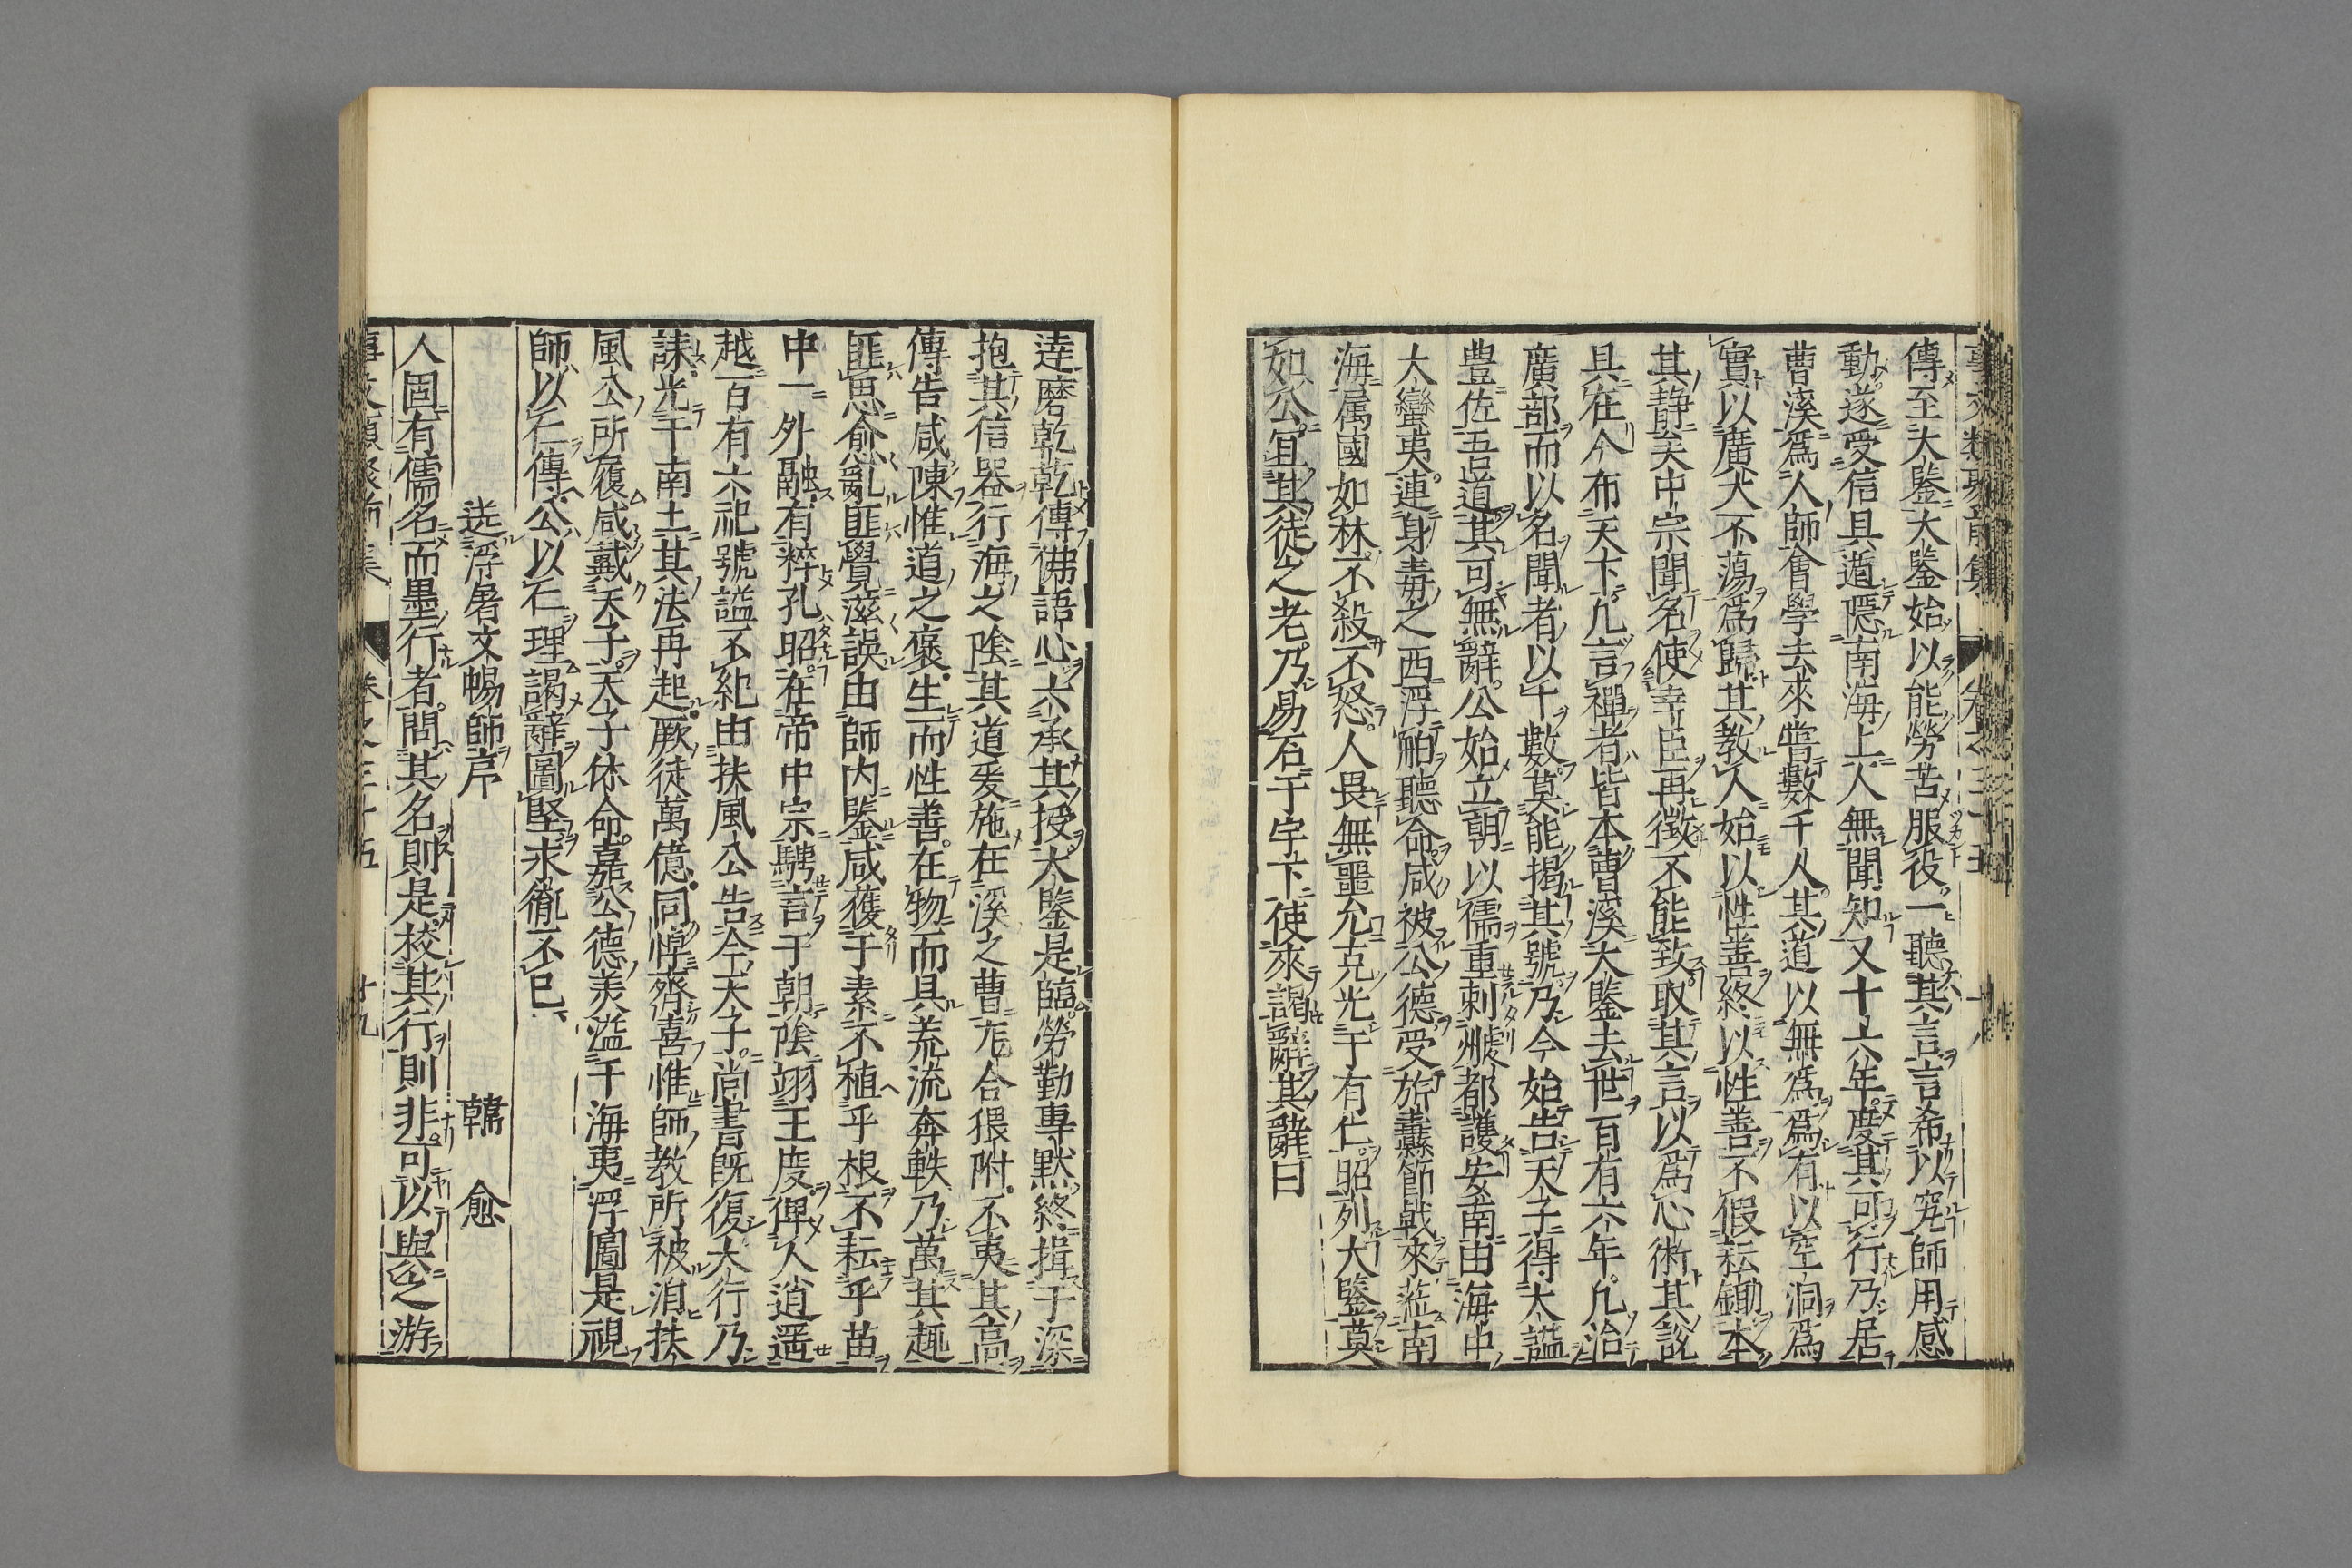 傳至大鑒大鑒始以能勞苦服役一聽其言言希以究師用感
動遂受信具遁隱南海上人無聞知又十六年度其可行乃居
曹溪爲人師會學去來嘗數千人其道以無爲爲有以空洞爲
實以廣大不蕩爲歸其教人始以性善終以性善不假耘鋤本
其静矣中宗聞名使幸臣再徴不能致取其言以爲心術其說
具在今布天下凡言禪者皆本曹溪大鑒去世百有六年凡治
廣部而以名聞者以十數莫能揭其號乃今始告天子得大謚
豊佐吾道其可無辭公始立朝以儒重刺䖍都護安南由海中
大蠻夷連身毒之西浮舶聽命咸被公德受旂纛節戟來莅南
海属國如林不殺不怒人畏無噩允克光于有仁昭列大鑒莫
如公宜其徒之老乃易石于宇下使來謁辭其辭曰
逹磨乾乾傳佛語心六承其授大鑒是臨勞勤專默終揖于深
抱其信器行海之陰其道爰施在溪之曹厖合猥附不夷其高
傳告咸陳惟道之褒生而性善在物而具荒流奔軼乃萬其趣
匪思愈亂匪覺滋誤由師内鑒咸獲于素不植乎根不耘乎苗
中一外融有粹孔昭在帝中宗騁言于朝陰翊王度俾人逍遥
越百有六祀號謚不紀由扶風公告今天子尚書既復大行乃
誄光于南土其法再起厥徒萬億同悼齊喜惟師教所被洎扶
風公所履咸戴天子天子休命嘉公德美溢于海夷浮圖是視
師以仁傳公以仁理謁辭圖堅永胤不已
送浮屠文暢師序 韓愈
人固有儒名而墨行者問其名則是校其行則非可以與之游